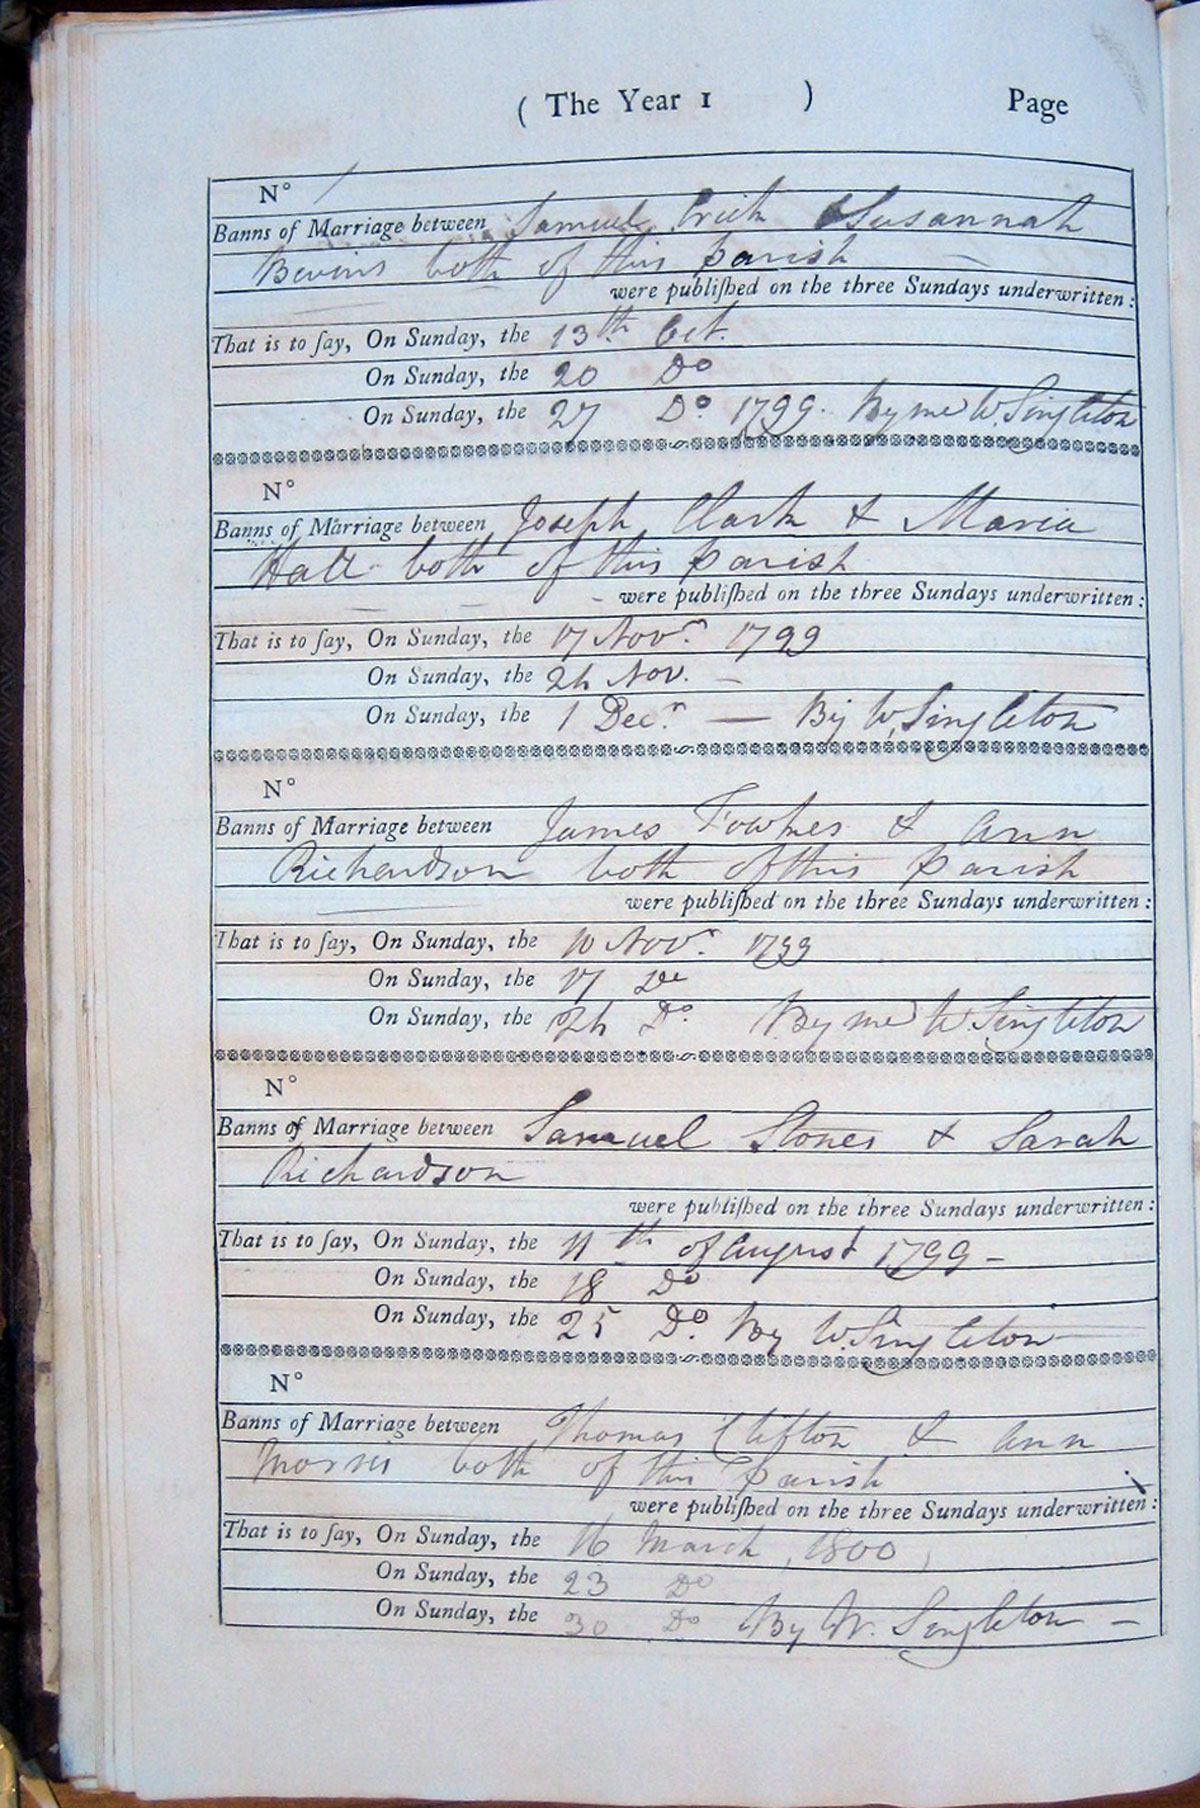 ( The Year 1 ) Page
N°
Banns of Marriage between Samuel Crich & Susannah
Bevins both of this parish
were publiſhed on the three Sundays underwritten :
That is to ſay, On Sunday, the 13th Oct.
On Sunday, the 20 Do
On Sunday, the 27 Do. 1799. By me W. Singleton
N°
Banns of Marriage between Joseph Clark & Maria
Hall both of this parish
were publiſhed on the three Sundays underwritten :
That is to ſay, On Sunday, the 17 Novr. 1799
On Sunday, the 24 Nov. —
On Sunday, the 1 Decr. — By W. Singleton
N°
Banns of Marriage between James Fowkes & Ann
Richardson both of this parish
were publiſhed on the three Sundays underwritten :
That is to ſay, On Sunday, the 10 Novr. 1799
On Sunday, the 17 Do
On Sunday, the 24 Do. By me W. Singleton
N°
Banns of Marriage between Samuel Stones & Sarah
Richardson
were publiſhed on the three Sundays underwritten :
That is to ſay, On Sunday, the 11th of August 1799 —
On Sunday, the 18 Do
On Sunday, the 25 Do. By W. Singleton
N°
Banns of Marriage between Thomas Clifton & Ann
Morris both of this parish
were publiſhed on the three Sundays underwritten :
That is to ſay, On Sunday, the 16 March, 1800,
On Sunday, the 23 Do
On Sunday, the 30 Do By W. Singleton —